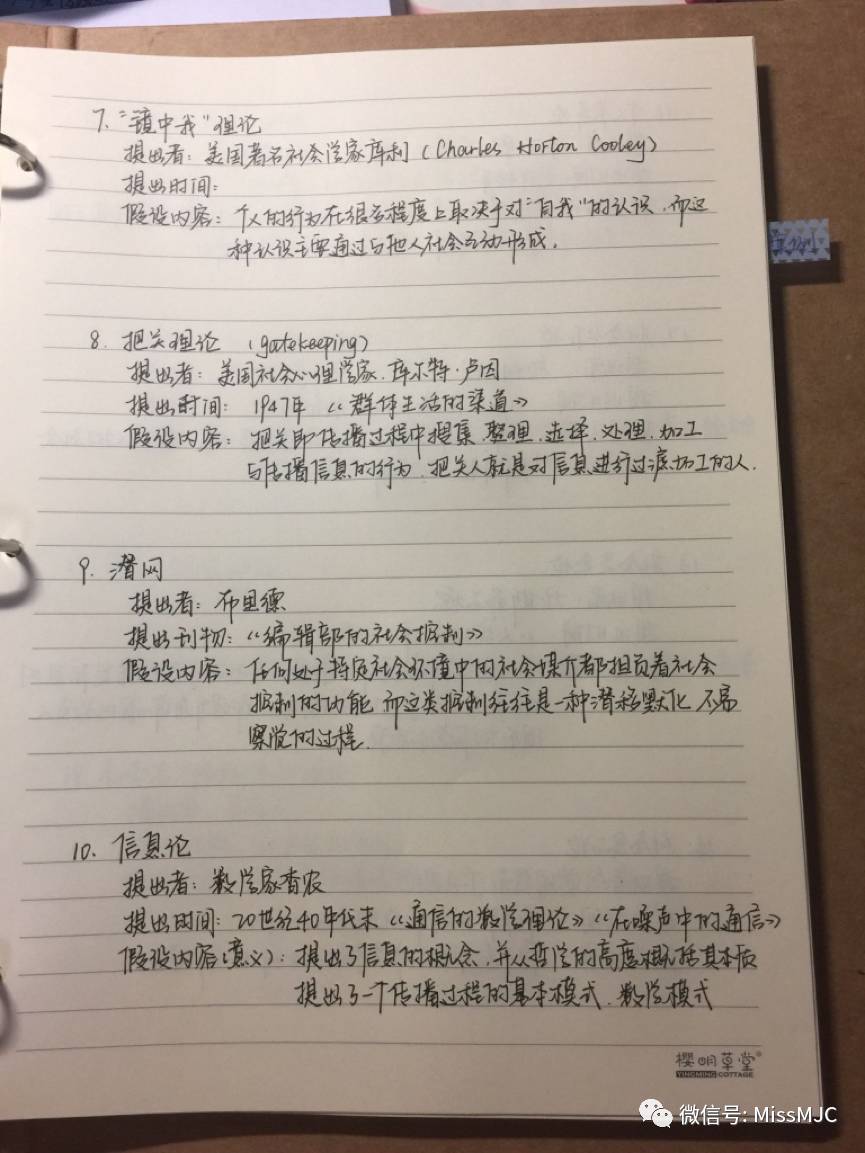 7. “镜中我”理论
提出者：美国著名社会学家库利（Charles Horton Cooley）
提出时间：
假设内容：个人的行为在很大程度上取决于对“自我”的认识，而这
种认识主要通过与他人社会互动形成。
8. 把关理论 （gatekeeping）
提出者：美国社会心理学家.库尔特·卢因
提出时间：1947年《群体生活的渠道》
假设内容：把关即传播过程中搜集.整理.选择.处理.加工
与传播信息的行为，把关人就是对信息进行过滤.加工的人.
9. 潜网
提出者：布里德
提出刊物：《编辑部的社会控制》
假设内容：任何处于特定社会环境中的社会媒介都担负着社会
控制的功能,而这类控制往往是一种潜移默化,不易
察觉的过程.
10. 信息论
提出者：数学家香农
提出时间：20世纪40年代末《通信的数学理论》《在噪声中的通信》
假设内容（意义）：提出了信息的概念.并从哲学的高度概括其本质
提出了一个传播过程的基本模式.数学模式
樱明草堂®
YINGMING COTTAGE
微信号: MissMJC